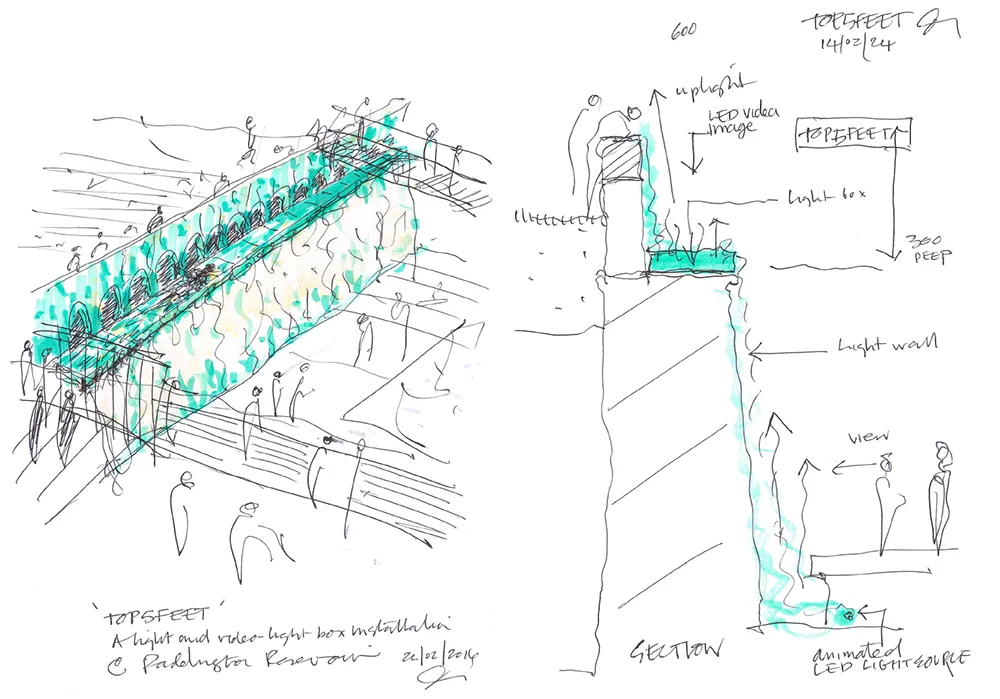 600
TOPSFEET
14/02/24
uplight
LED video
image
TOPSFEET
light box
300
DEEP
light wall
view
'TOPSFEET'
A light and video-light box installation
@ Paddington Reservoir 22/02/2014
SECTION
animated
LED LIGHT SOURCE